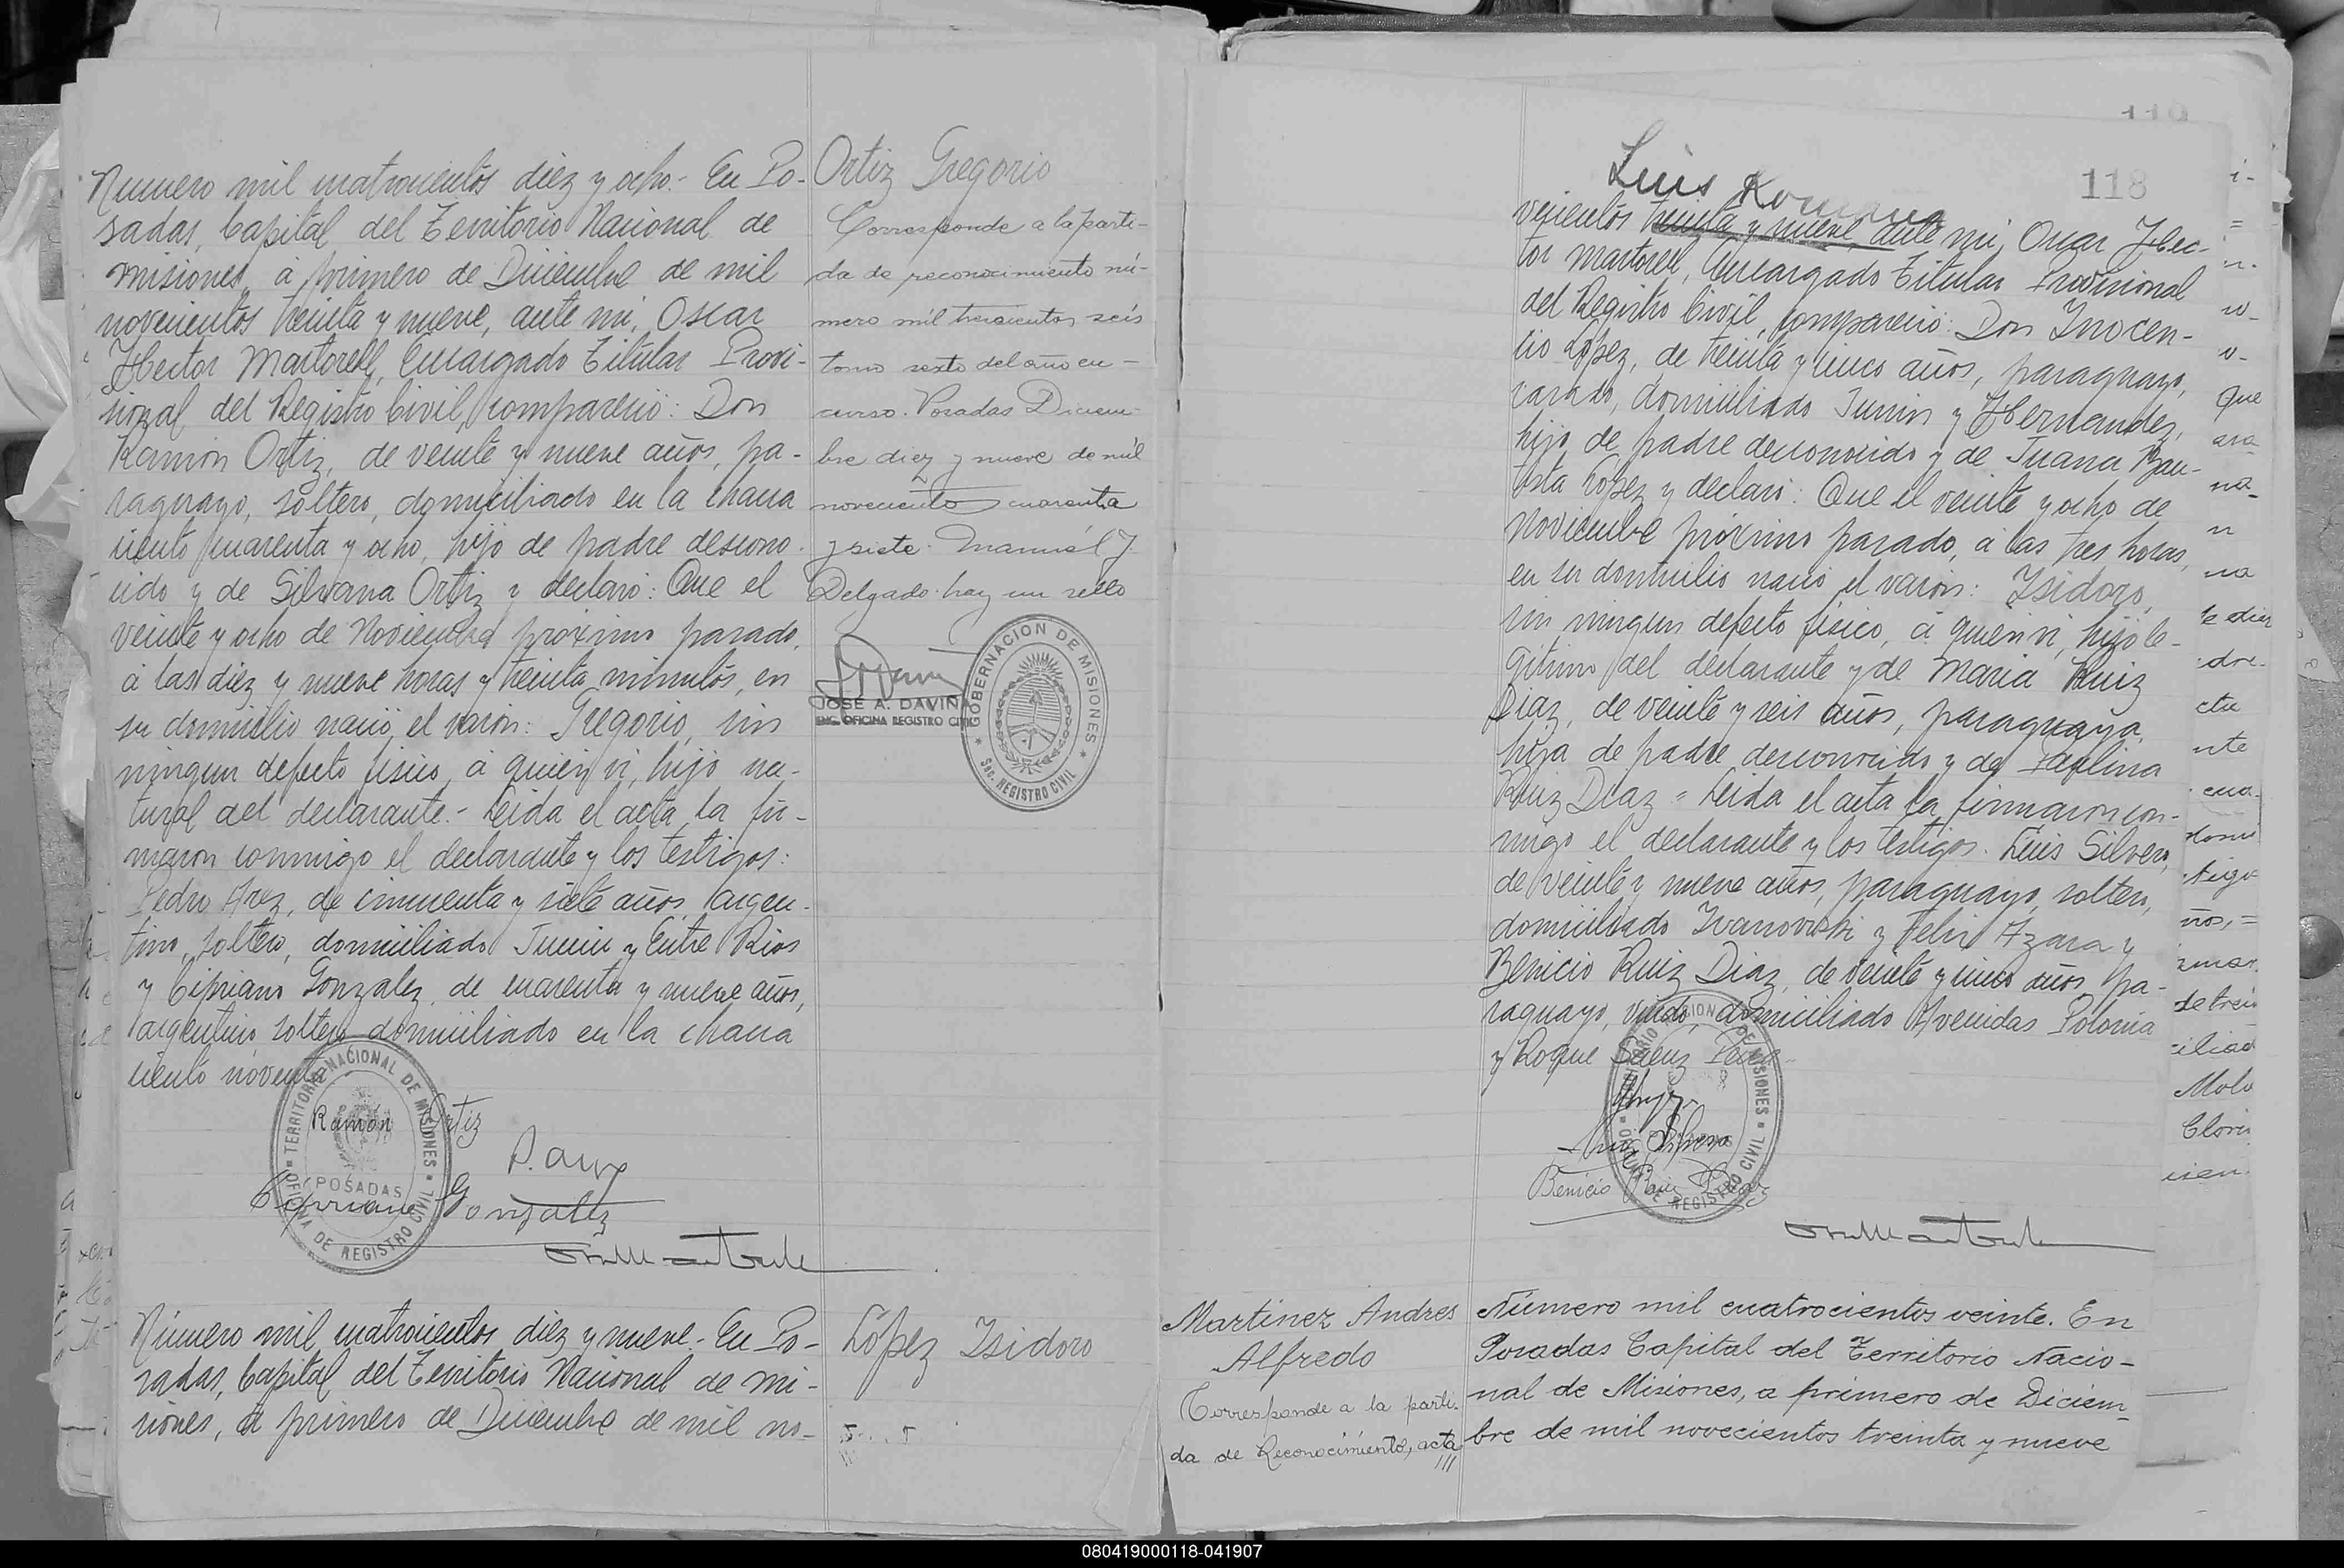 Numero mil cuatrocientos diez y ocho.- En Po-
sadas, Capital del Territorio Nacional de
Misiones, á primero de Diciembre de mil
novecientos treinta y nueve, ante mi, Oscar
Hector Martorell, Encargado Titular Provi-
sional del Registro Civil, compareció: Don
Ramón Ortiz, de veinte y nueve años, pa-
raguayo, soltero, domiciliado en la chacra
ciento cuarenta y ocho, hijo de padre descono-
cido y de Silvana Ortiz y declaró: Que el
veinte y ocho de Noviembre próximo pasado,
á las diez y nueve horas y treinta minutos, en
su domicilio nació el varón: Gregorio, sin
ningun defecto fisico, á quien vi, hijo na-
tural del declarante.- Leida el acta la fir-
maron conmigo el declarante y los testigos:
Pedro Arez, de cincuenta y siete años, argen-
tino, soltero, domiciliado Junin y Entre Rios
y Cipriano Gonzalez, de cuarenta y nueve años,
argentino, soltero domiciliado en la chacra
ciento noventa
Ramón Ortiz
Cipriano Gonzalez
TERRITORIO NACIONAL DE MISIONES
POSADAS
OFICINA DE REGISTRO CIVIL
Ortiz Gregorio
Corresponde a la parti-
da de reconocimiento nú-
mero mil trescientos seis
tomo sexto del año en-
curso. Posadas Diciem-
bre diez y nueve de mil
novecientos cuarenta
y siete. Manuel J.
Delgado hay un sello
JOSE A. DAVIÑA
ENC. OFICINA REGISTRO CIVIL
GOBERNACION DE MISIONES
Sec. REGISTRO CIVIL
Número mil cuatrocientos diez y nueve.- En Po-
sadas, Capital del Territorio Nacional de Mi-
siones, á primero de Diciembre de mil no-
López Isidoro
118
Luis Romano
vecientos treinta y nueve, ante mi, Oscar Hec-
tor Martorell, Encargado Titular Provisional
del Registro Civil, compareció: Don Inocen-
cio López, de treinta y cinco años, paraguayo,
casado, domiciliado Junin y Hernandez,
hijo de padre desconocido y de Juana Bau-
tista López y declaró: Que el veinte y ocho de
Noviembre próximo pasado, á las tres horas,
en su domicilio nació el varón: Isidoro,
sin ningun defecto fisico, á quien vi, hijo le-
gitimo del declarante y de Maria Ruiz
Diaz, de veinte y seis años, paraguaya,
hija de padre desconocido y de Paulina
Ruiz Diaz = Leida el acta la firmaron con-
migo el declarante y los testigos: Luis Silvero,
de veinte y nueve años, paraguayo, soltero,
domiciliado Ivanovski y Felix Azara y
Benicio Ruiz Diaz, de veinte y cinco años, pa-
raguayo, viudo, domiciliado Avenidas Polonia
y Roque Saenz Peña
Luis Silvero
Benicio Ruiz Diaz
Martinez Andres
Alfredo
Corresponde a la parti-
da de Reconocimiento, acta
Número mil cuatrocientos veinte. En
Posadas Capital del Territorio Nacio-
nal de Misiones, a primero de Diciem-
bre de mil novecientos treinta y nueve
080419000118-041907